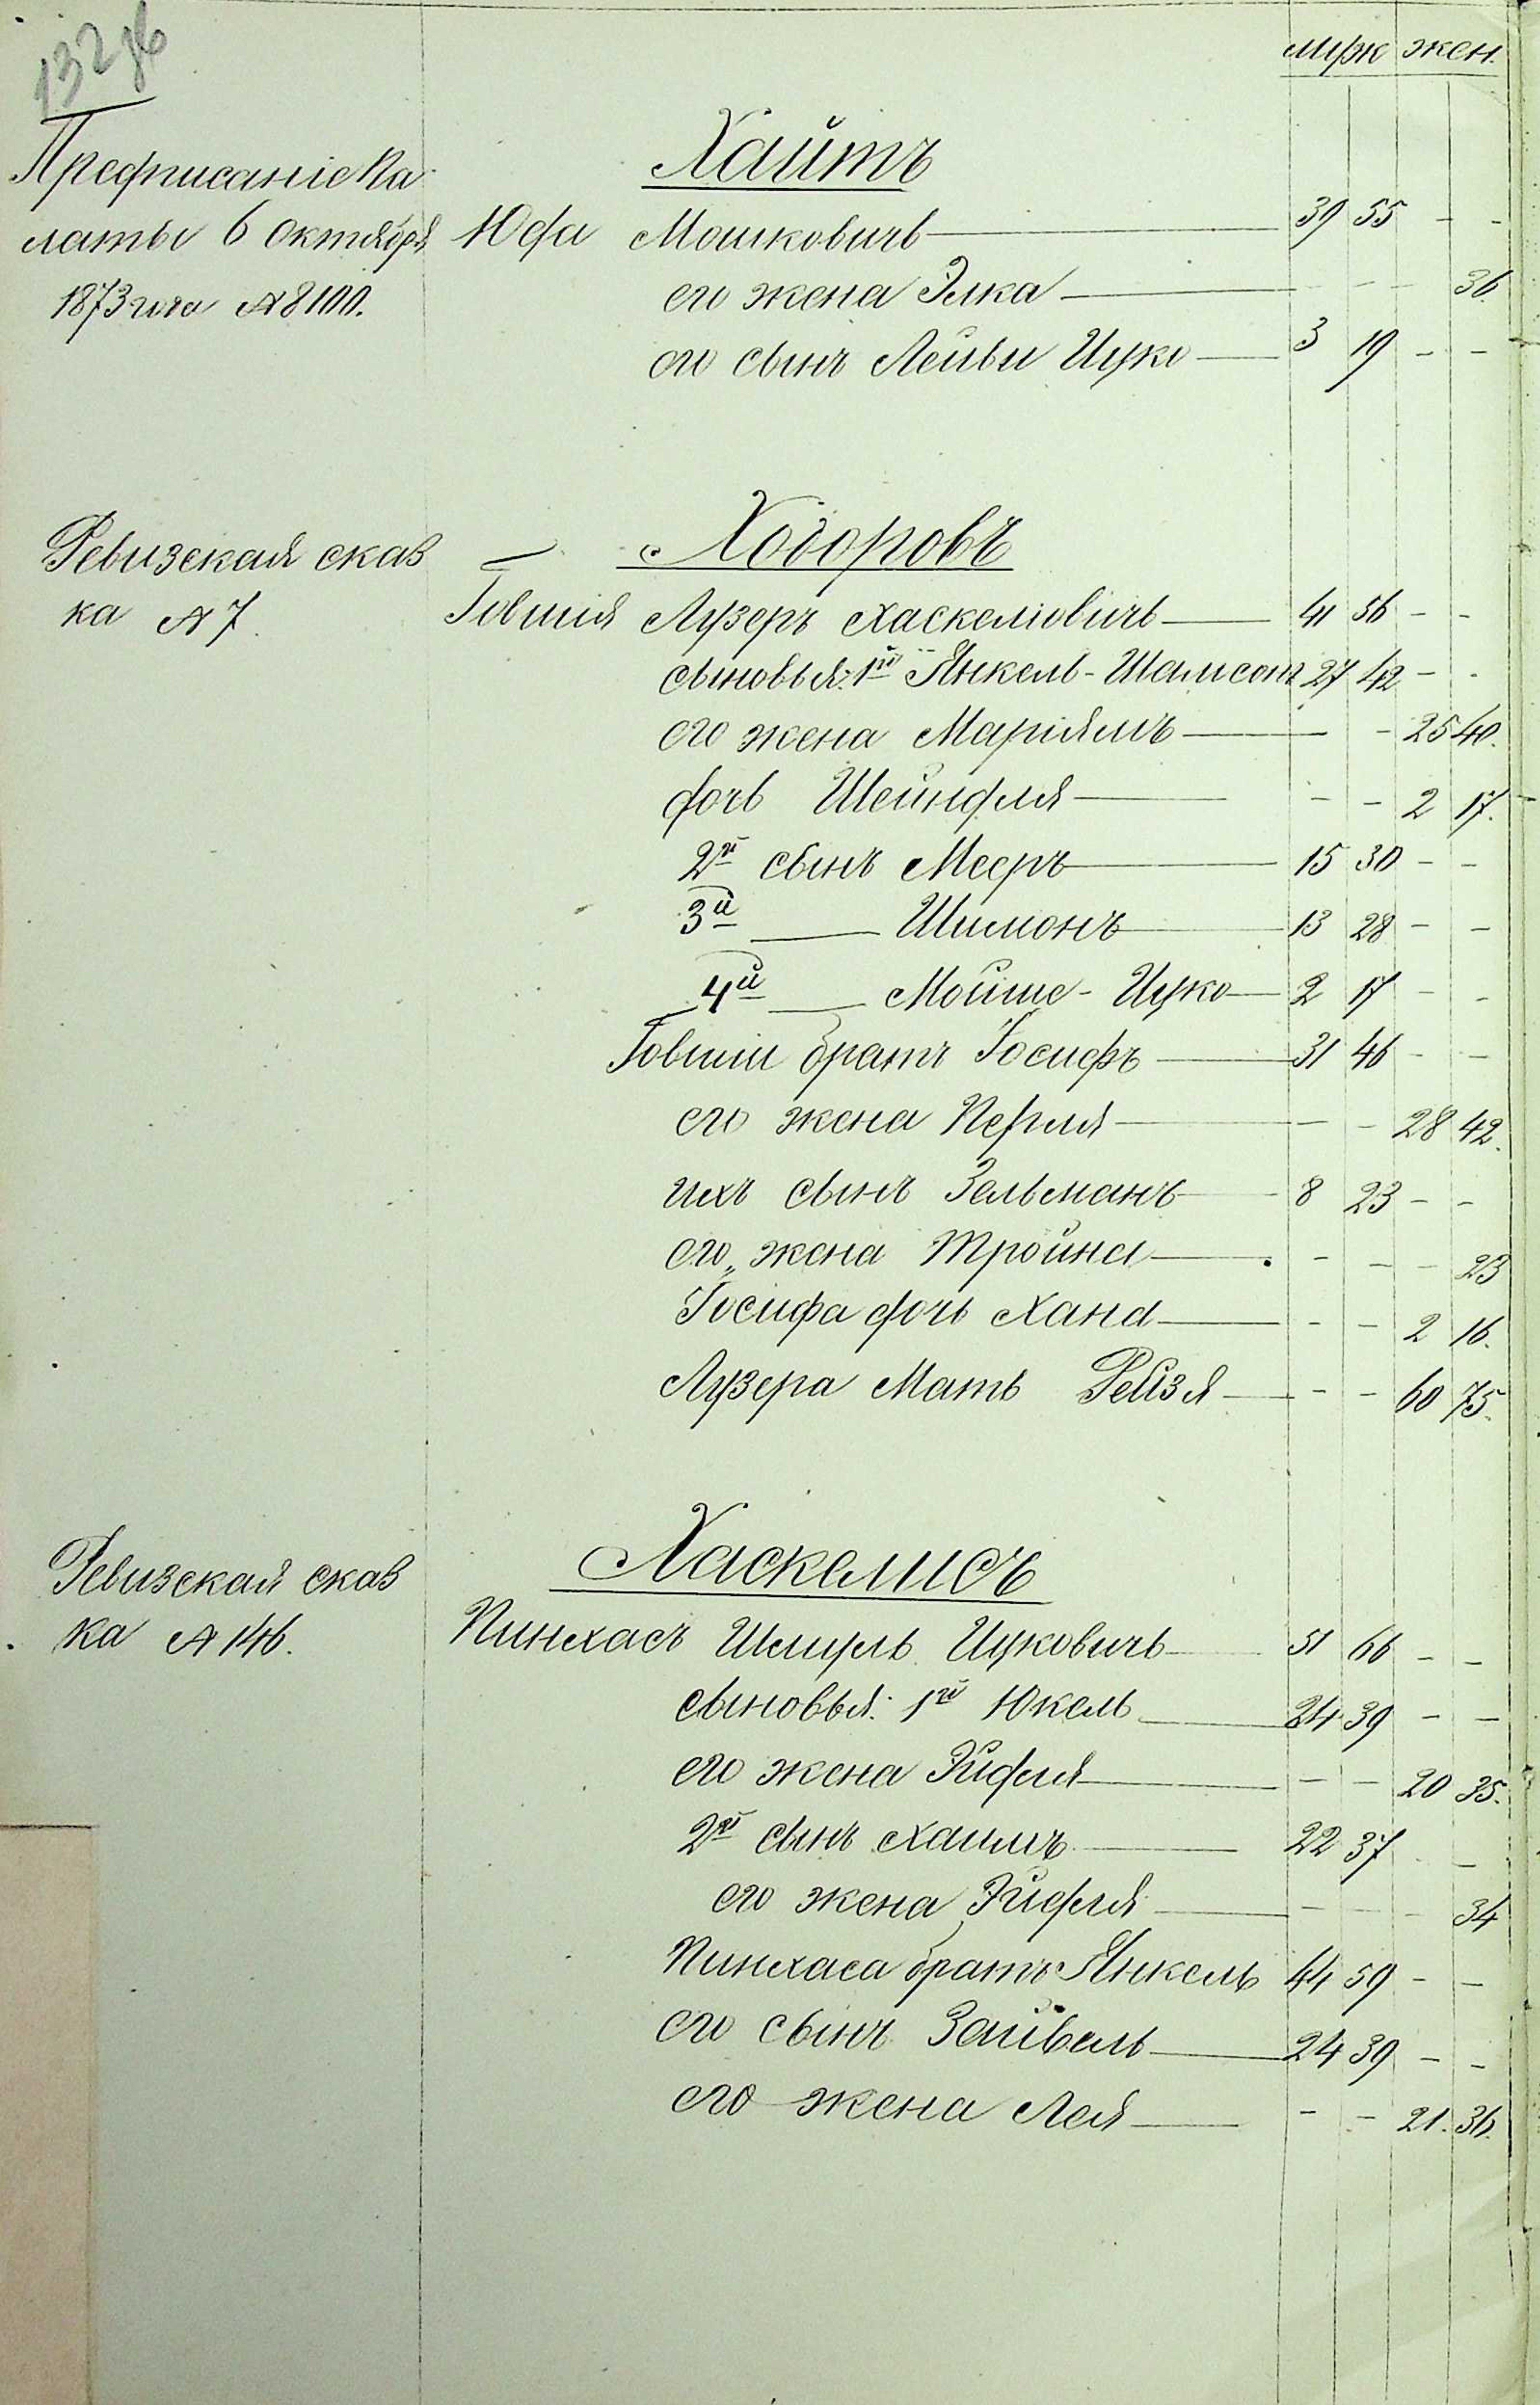 132 об
муж жен.
Предписаніе Па-
латы 6 Октября
1873 года № 8100.
Хаитъ
Юда Мошковичъ 39 55 - -
его жена Элка - - - 36.
его сынъ Лейви Ицко 3 19 - -
Ревизская сказ
ка № 7.
Ходоровъ
Іовшія Лузеръ Хаскелювичъ 41 56 - -
сыновья: 1й Янкель-Шамсонъ 27 42 - -
его жена Маріямъ - - 25 40.
дочь Шейндля - - 2 17.
2й сынъ Мееръ 15 30 - -
3й — Шимонъ 13 28 - -
4й — Мойше-Ицко 2 17 - -
Іовшіи братъ Іосифъ 31 46 - -
его жена Перля - - 28 42.
ихъ сынъ Зельманъ 8 23 - -
его жена Тройна - - - 23
Іосифа дочь Хана - - 2 16.
Лузера Мать Рейзя - - 60 75.
Ревизская сказ
ка № 146.
Хаскелисъ
Пинхасъ Шмуль Ицковичъ 51 66 - -
сыновья: 1й Юкель 24 39 - -
его жена Эйдля - - 20 35.
2й сынъ Хаимъ 22 37 - -
его жена Эйдля - - - 34
Пинхаса братъ Янкель 44 59 - -
его сынъ Зайвель 24 39 - -
его жена Лея - - 21. 36.